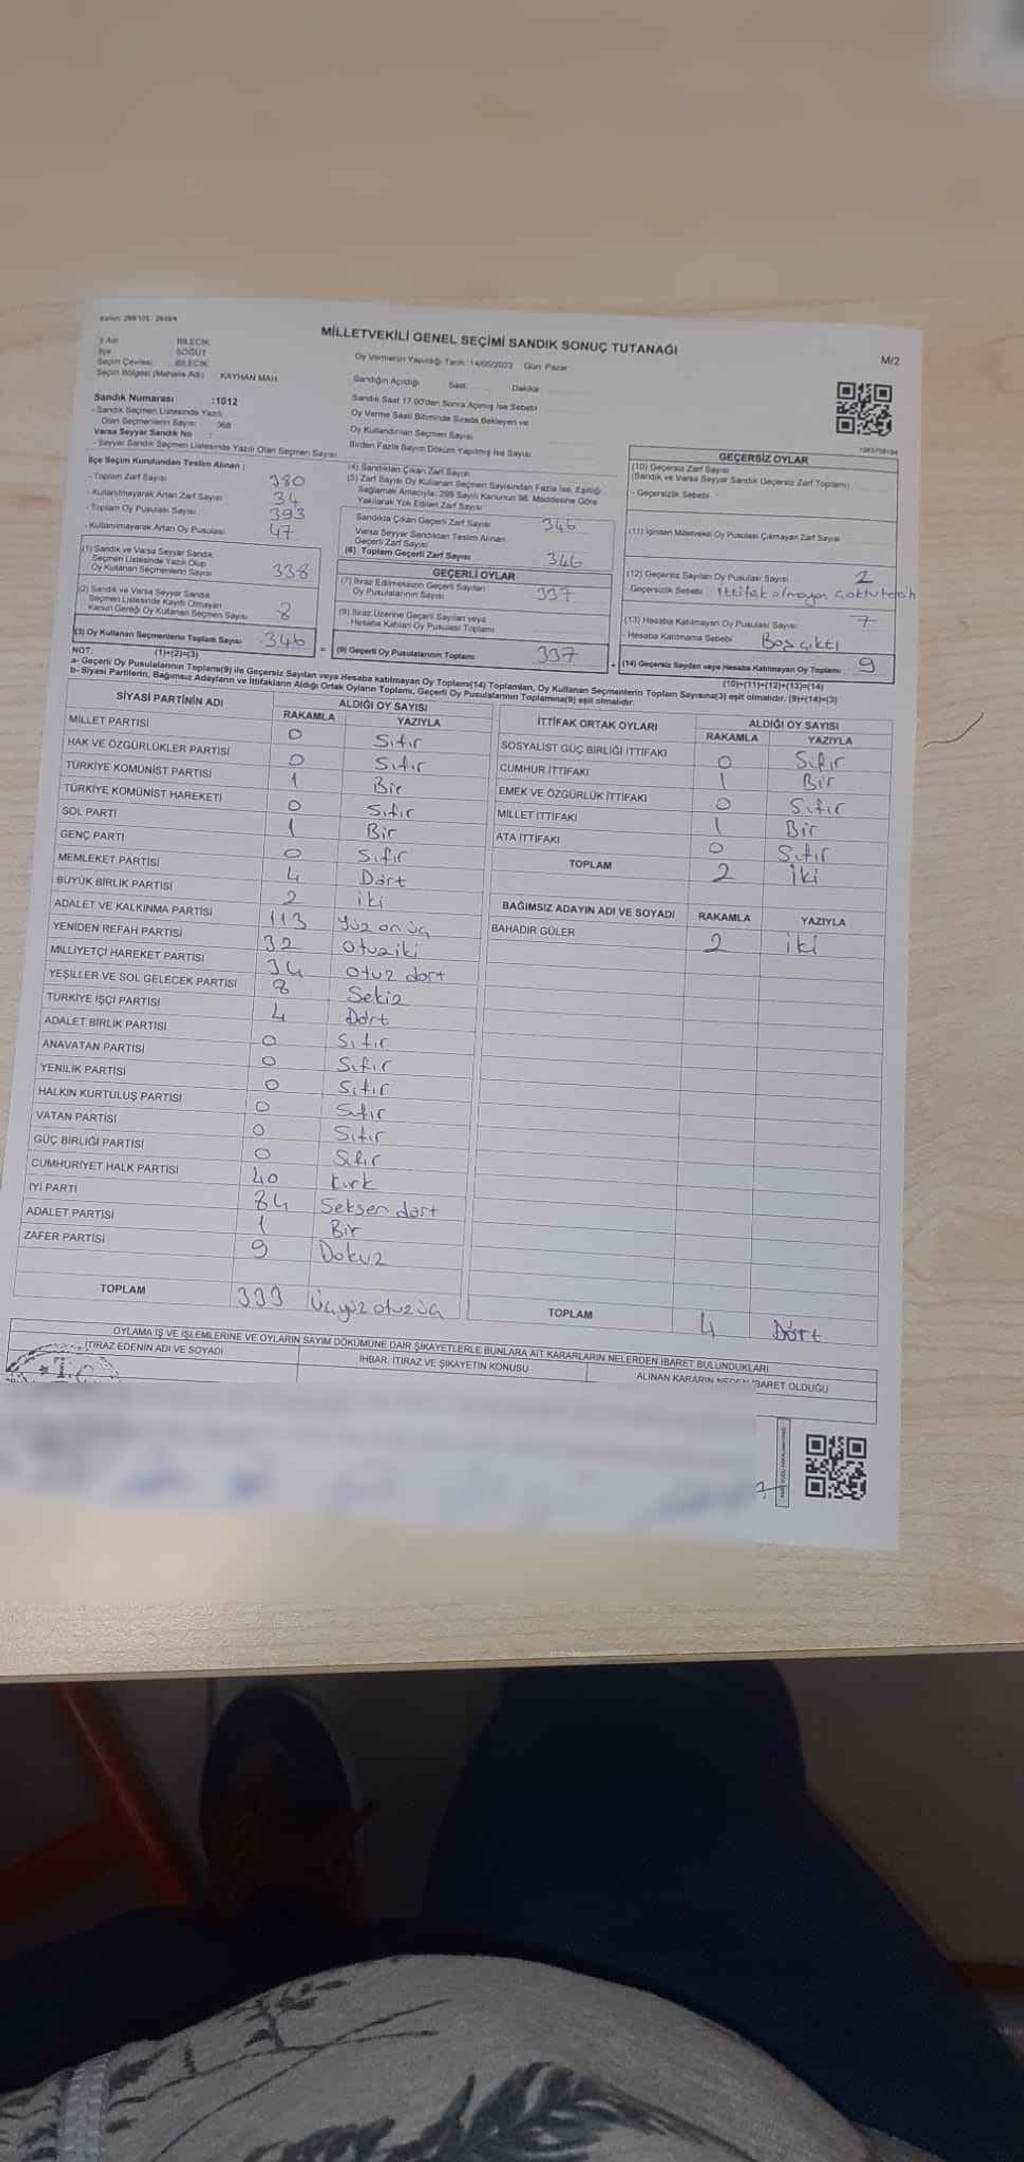 MİLLETVEKİLİ GENEL SEÇİMİ SANDIK SONUÇ TUTANAĞI
M/2
İlçe SÖĞÜT
Seçim Çevresi BİLECİK
Seçim Bölgesi (Mahalle Adı) KAYHAN MAH.
Oy Vermenin Yapıldığı Tarih: 14/05/2023 Gün: Pazar
Sandığın Açıldığı Saat Dakika
Sandık Numarası :1012
- Sandık Seçmen Listesinde Yazılı
Olan Seçmenlerin Sayısı 368
Varsa Seyyar Sandık No :
- Seyyar Sandık Seçmen Listesinde Yazılı Olan Seçmen Sayısı
Sandık Saat 17.00'den Sonra Açılmış İse Sebebi
Oy Verme Saati Bitiminde Sırada Bekleyen ve
Oy Kullandırılan Seçmen Sayısı
Birden Fazla Sayım Döküm Yapılmış İse Sayısı
İlçe Seçim Kurulundan Teslim Alınan ;
- Toplam Zarf Sayısı 380
- Kullanılmayarak Artan Zarf Sayısı 34
- Toplam Oy Pusulası Sayısı 393
- Kullanılmayarak Artan Oy Pusulası 47
(1) Sandık ve Varsa Seyyar Sandık
Seçmen Listesinde Yazılı Olup
Oy Kullanan Seçmenlerin Sayısı 338
(2) Sandık ve Varsa Seyyar Sandık
Seçmen Listesinde Kayıtlı Olmayan
Kanun Gereği Oy Kullanan Seçmen Sayısı 8
(3) Oy Kullanan Seçmenlerin Toplam Sayısı 346
(1)+(2)=(3)
(4) Sandıktan Çıkan Zarf Sayısı
(5) Zarf Sayısı Oy Kullanan Seçmen Sayısından Fazla İse, Eşitliği
Sağlamak Amacıyla, 298 Sayılı Kanunun 98. Maddesine Göre
Yakılarak Yok Edilen Zarf Sayısı
Sandıkta Çıkan Geçerli Zarf Sayısı 346
Varsa Seyyar Sandıktan Teslim Alınan
Geçerli Zarf Sayısı
(6) Toplam Geçerli Zarf Sayısı 346
GEÇERLİ OYLAR
(7) İtiraz Edilmeksizin Geçerli Sayılan
Oy Pusulalarının Sayısı 337
(8) İtiraz Üzerine Geçerli Sayılan veya
Hesaba Katılan Oy Pusulası Toplamı
(9) Geçerli Oy Pusulalarının Toplamı 337
GEÇERSİZ OYLAR
(10) Geçersiz Zarf Sayısı
(Sandık ve Varsa Seyyar Sandık Geçersiz Zarf Toplamı)
- Geçersizlik Sebebi
(11) İçinden Milletvekili Oy Pusulası Çıkmayan Zarf Sayısı
(12) Geçersiz Sayılan Oy Pusulası Sayısı 2
- Geçersizlik Sebebi İttifak olmayan çoklu tercih
(13) Hesaba Katılmayan Oy Pusulası Sayısı 7
- Hesaba Katılmama Sebebi Boş çıktı
(14) Geçersiz Sayılan veya Hesaba Katılmayan Oy Toplamı 9
(10)+(11)+(12)+(13)=(14)
NOT:
a- Geçerli Oy Pusulalarının Toplamı(9) ile Geçersiz Sayılan veya Hesaba Katılmayan Oy Toplamı(14) Toplamları, Oy Kullanan Seçmenlerin Toplam Sayısına(3) eşit olmalıdır. (9)+(14)=(3)
b- Siyasi Partilerin, Bağımsız Adayların ve İttifakların Aldığı Ortak Oyların Toplamı, Geçerli Oy Pusulalarının Toplamına(9) eşit olmalıdır.
SİYASİ PARTİNİN ADI ALDIĞI OY SAYISI
RAKAMLA YAZIYLA
MİLLET PARTİSİ 0 Sıfır
HAK VE ÖZGÜRLÜKLER PARTİSİ 0 Sıfır
TÜRKİYE KOMÜNİST PARTİSİ 1 Bir
TÜRKİYE KOMÜNİST HAREKETİ 0 Sıfır
SOL PARTİ 1 Bir
GENÇ PARTİ 0 Sıfır
MEMLEKET PARTİSİ 4 Dört
BÜYÜK BİRLİK PARTİSİ 2 iki
ADALET VE KALKINMA PARTİSİ 113 Yüz on üç
YENİDEN REFAH PARTİSİ 32 Otuziki
MİLLİYETÇİ HAREKET PARTİSİ 34 Otuz dört
YEŞİLLER VE SOL GELECEK PARTİSİ 8 Sekiz
TÜRKİYE İŞÇİ PARTİSİ 4 Dört
ADALET BİRLİK PARTİSİ 0 Sıfır
ANAVATAN PARTİSİ 0 Sıfır
YENİLİK PARTİSİ 0 Sıfır
HALKIN KURTULUŞ PARTİSİ 0 Sıfır
VATAN PARTİSİ 0 Sıfır
GÜÇ BİRLİĞİ PARTİSİ 0 Sıfır
CUMHURİYET HALK PARTİSİ 40 Kırk
İYİ PARTİ 84 Seksen dört
ADALET PARTİSİ 1 Bir
ZAFER PARTİSİ 9 Dokuz
TOPLAM 333 Üçyüz otuz üç
İTTİFAK ORTAK OYLARI ALDIĞI OY SAYISI
RAKAMLA YAZIYLA
SOSYALİST GÜÇ BİRLİĞİ İTTİFAKI 0 Sıfır
CUMHUR İTTİFAKI 1 Bir
EMEK VE ÖZGÜRLÜK İTTİFAKI 0 Sıfır
MİLLET İTTİFAKI 1 Bir
ATA İTTİFAKI 0 Sıfır
TOPLAM 2 İki
BAĞIMSIZ ADAYIN ADI VE SOYADI RAKAMLA YAZIYLA
BAHADIR GÜLER 2 iki
TOPLAM 4 Dört
OYLAMA İŞ VE İŞLEMLERİNE VE OYLARIN SAYIM DÖKÜMÜNE DAİR ŞİKAYETLERLE BUNLARA AİT KARARLARIN NELERDEN İBARET BULUNDUKLARI
İTİRAZ EDENİN ADI VE SOYADI
İHBAR, İTİRAZ VE ŞİKAYETİN KONUSU
ALINAN KARARIN NEDEN İBARET OLDUĞU
T.C.